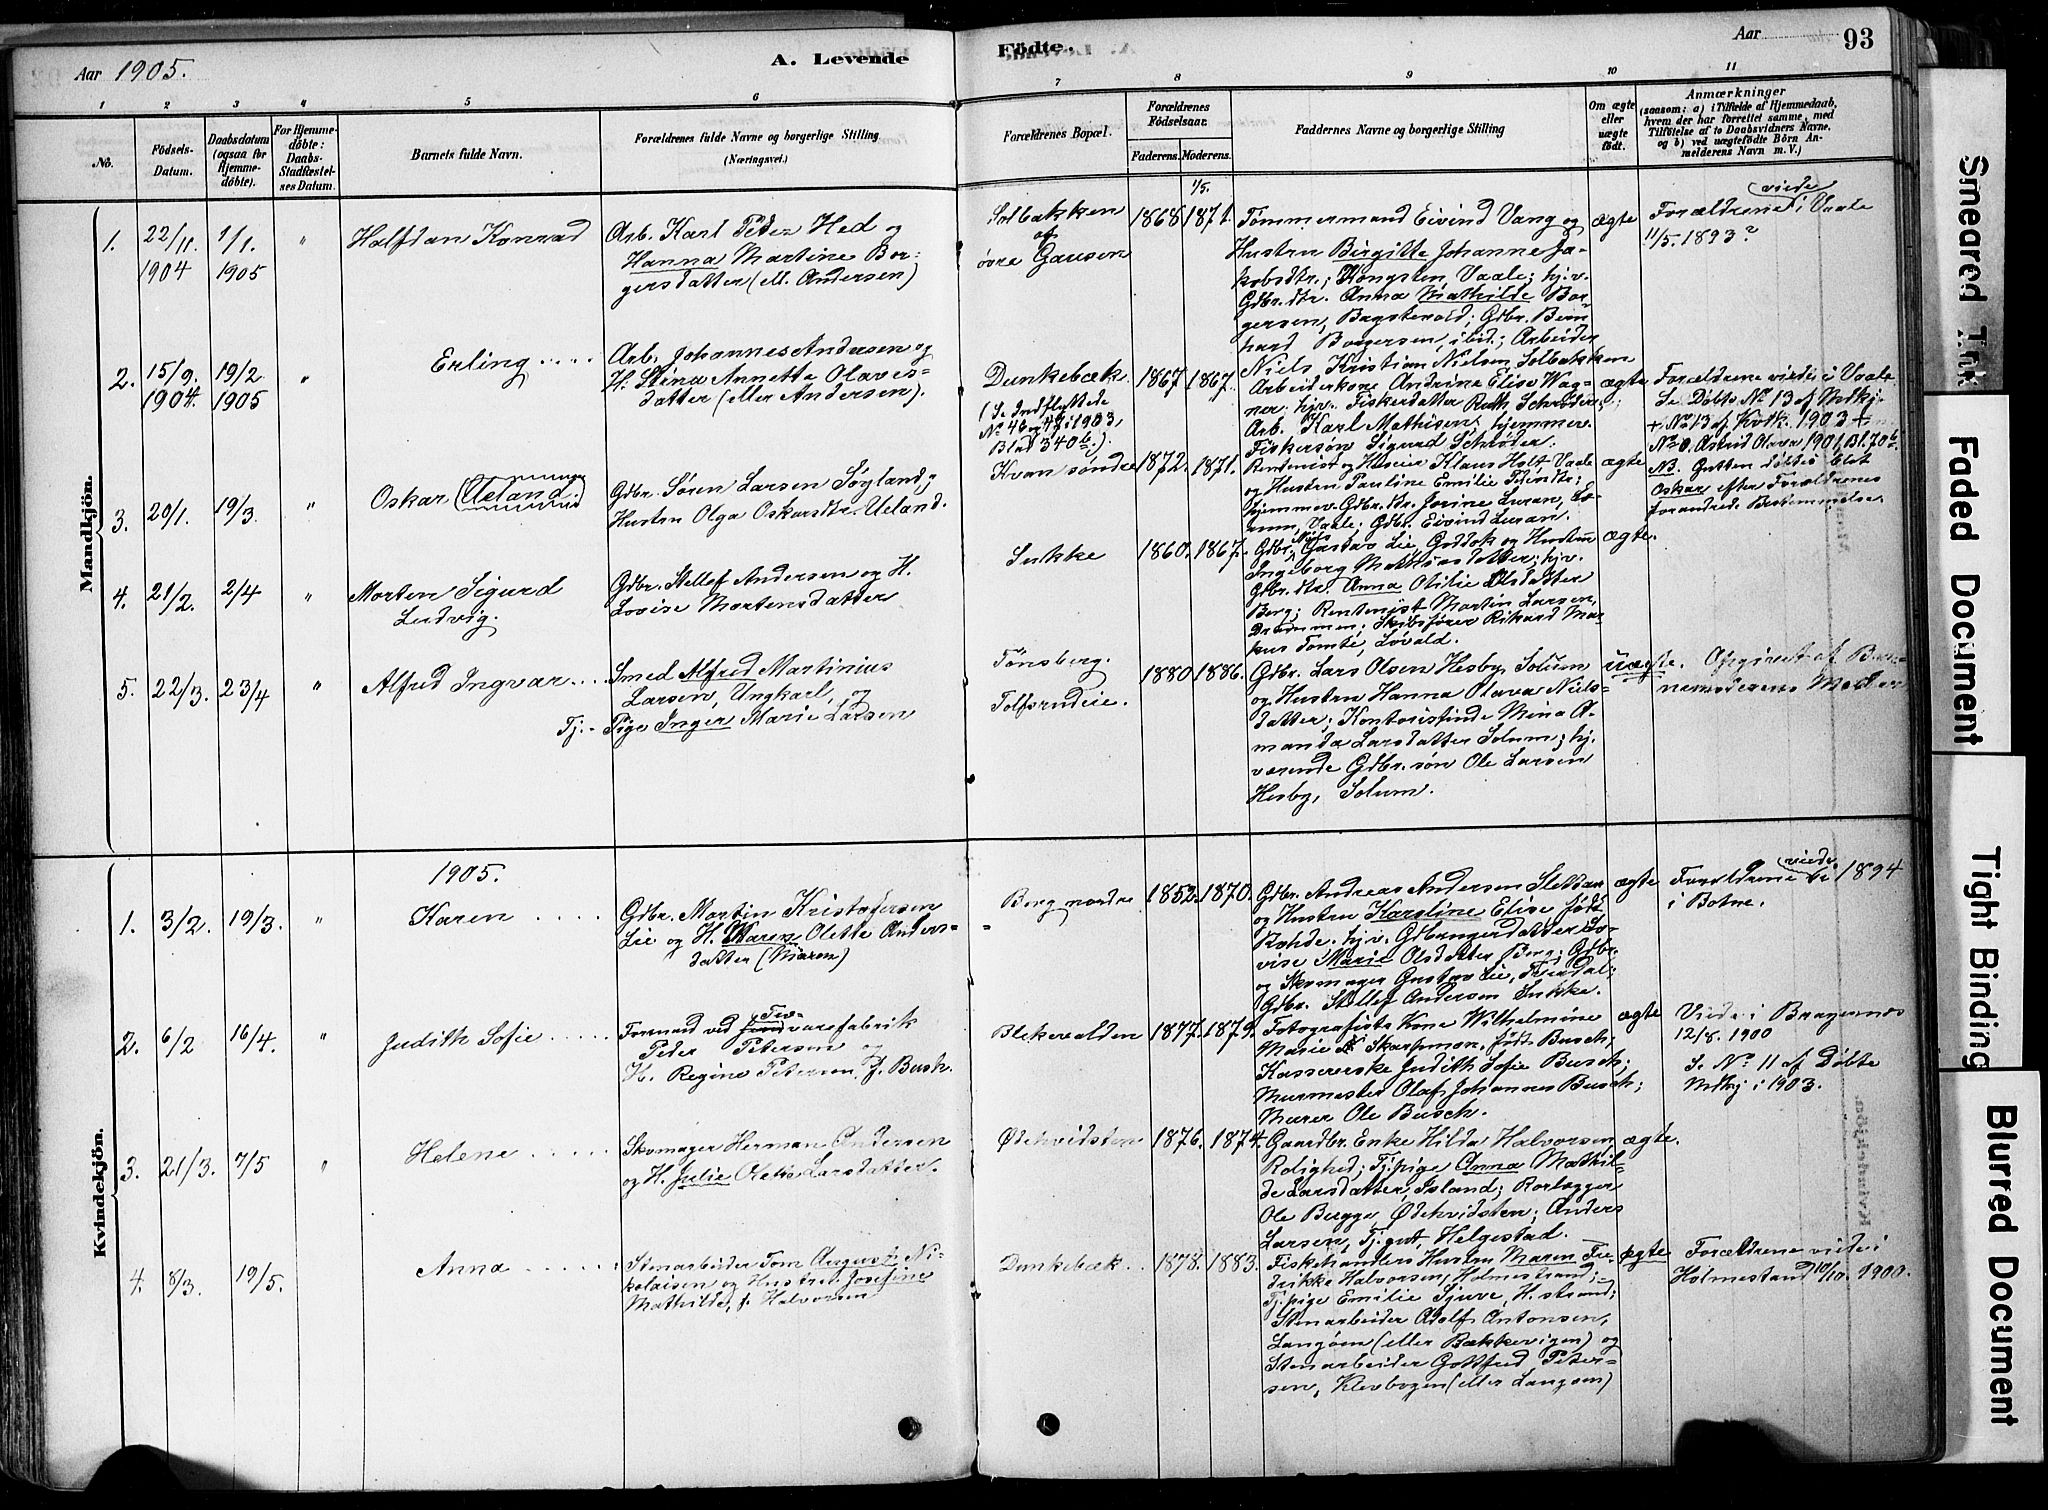 Aar 1905.
A. Levende
Födte.
Aar
93
1 2 3 4 5 6 7 8 9 10 11
No.
Födsels-
Datum.
Daabsdatum
(ogsaa for
Hjemme-
döbte).
For Hjemme-
döbte:
Daabs-
Stadfæstel-
ses Datum.
Barnets fulde Navn.
Forældrenes fulde Navne og borgerlige Stilling
(Næringsvei.)
Forældrenes Bopæl.
Forældrenes
Födselsaar.
Faderens. Moderens.
Faddernes Navne og borgerlige Stilling
Om ægte
eller
uægte
födt.
Anmærkninger
(saasom: a) i Tilfælde af Hjemmedaab,
hvem der har forrettet samme, med
Tilföielse af to Daabsvidners Navne,
og b) ved uægtefödte Börn An-
melderens Navn m. V.)
Mandkjön.
1.
22/11.
1904
1/1.
1905
"
Halfdan Konrad
Arb. Karl Peder Hed og
Hanna Martine Bor-
gersdatter (ell. Andersen)
Solbakken
af
øvre Gausen
1868
1/5.
1871.
Tømmermand Eivind Vang og
Hustru Birgitte Johanne Ja-
kobsdtr., Kongsten, Vaale; hjv.
Gdbr.dtr. Anna Mathilde Bor-
gersen, Bagstevold; Gdbr. Bern
hard Borgersen, ibid.; Arbeider
Niels Kristian Nielsen Solbakken
ægte
Forældrene viede i Vaale
11/5. 1893?
2.
15/9.
1904.
19/2
1905
"
Erling ....
Arb. Johannes Andersen og
H. Stina Annette Olaves-
datter (eller Andersen).
Dunkebæk.
(Se Indflyttede
No 46 og 47 i 1903,
Blad 340b.).
1867. 1867.
Arbeiderkone Andrine Elise Wag-
ner; hjv. Fiskerdatter Ruth Schrøder;
Arb. Karl Mathisen, hjemmev.
Fiskersøn Sigurd Schrøder.
ægte
Forældrene viede i Vaale
Se Døbte No 13 af Mdkj.
+ No 13 af Kvdk. 1903 +
Astrid Olava 1901 Bl. 70b.
3.
20/1.
19/3.
"
Oskar (Ueland)
Gdbr. Søren Larsen Søyland,
Hustru Olga Oskarsdtr. Ueland.
Kvan søndre
1872. 1871.
Rentenist og Huseier Klaus Holt, Vaale
og Hustru Pauline Emilie
hjemmev. Gdbr. dtr. Jorine Luran,
Vaale; Gdbr. Eivind Luran.
ægte
NB. Gutten døbtes blot
Oskar efter Forældrenes
forandrede Bestemmelse
4.
21/2.
2/4
"
Morten Sigurd
Ludvig.
Gdbr. Stellef Andersen og H.
Lovise Mortensdatter
Sukke
1860. 1867.
Gdbr. Niels Gustav Lie, Goddok og Hustru
Ingeborg Mathiasdatter; hjv.
Gdbr.dtr. Anna Otilie Olsdatter
Berg; Rentenist Martin Larsen,
Drammen; Skibsfører Rikard Mar-
kus Tomte, Løvald.
ægte.
5.
22/3.
23/4
"
Alfred Ingvar ....
Smed Alfred Martinius
Larsen, Ungkarl, og
Tj.- Pige Inger Marie Larsen
Tønsberg.
Tolfsrudeie.
1880. 1886.
Gdbr. Lars Olsen Hesby, Solum
og Hustru Hanna Olava Niels-
datter; Kontoristinde Mina A-
manda Larsdatter Solum; hj.
værende Gdbr.søn Ole Larsen
Hesby, Solum.
uægte.
Opgivet af Bar-
nemoderens Moder
Kvindekjön.
1905.
1.
3/2.
19/3.
"
Karen ....
Gdbr. Martin Kristofersen
Lie og H. Maren Olette Anders-
datter (Maren)
Berg nordre
1852. 1870.
Gdbr. Andreas Andersen Slettan
og Hustru Karoline Elise født
Rohde. hjv. Gdbrugerdatter Lo-
vise Marie Olsdatter Berg; Gdbr.
og Skomager Gustav Lie, Furudal;
Gdbr. Stellef Andersen Sukke.
ægte
Forældrene viede i 1894
i Botne.
2.
6/2
16/4.
"
Judith Sofie ....
Formand ved Trævarefabrik
Peder Petersen og
H. Regine Petersen f. Bush.
Blekevolden
1877. 1879.
Fotografists Kone Wilhelmine
Marie Skarpmon, født Busch;
Kassererske Judith Sofie Busch;
Murmester Olaf Johannes Busch;
Murer Ole Busch.
ægte
Viede i Bragernes
12/8. 1900
S. No 11 af Døbte
Mdkj i 1903.
3.
21/3.
7/5
"
Helene ....
Skomager Herman Andersen
og H. Julie Olette Larsdatter.
Ødekvidsten
1876. 1874.
Gaardbr. Enke Hilda Halvorsen,
Rolighed; Tj.pige Anna Mathil-
de Larsdatter, Island; Rørlægger
Ole Bergge, Ødekvidsten; Anders
Larsen, Tj.gut, Helgestad.
ægte.
4.
8/3.
19/5.
Anna ....
Stenarbeider Tom August Ni-
kolaisen og Hustru Josefine
Mathilde, f. Halvorsen
Dunkebæk.
1878. 1883.
Fiskehandlers Hustru Maren Fre-
drikke Halvorsen, Holmestrand;
Tj.pige Emilie Sjuve, H.strand;
Stenarbeider Adolf Antonsen,
Langøen (eller Bækkevigen) og
Stenarbeider Gottfred Peter-
sen, Klevbogen (eller Langøen)
ægte
Forældrene viede i
Holmestrand 10/10. 1900.
Smeared Ink
Faded Document
Tight Binding
Blurred Document